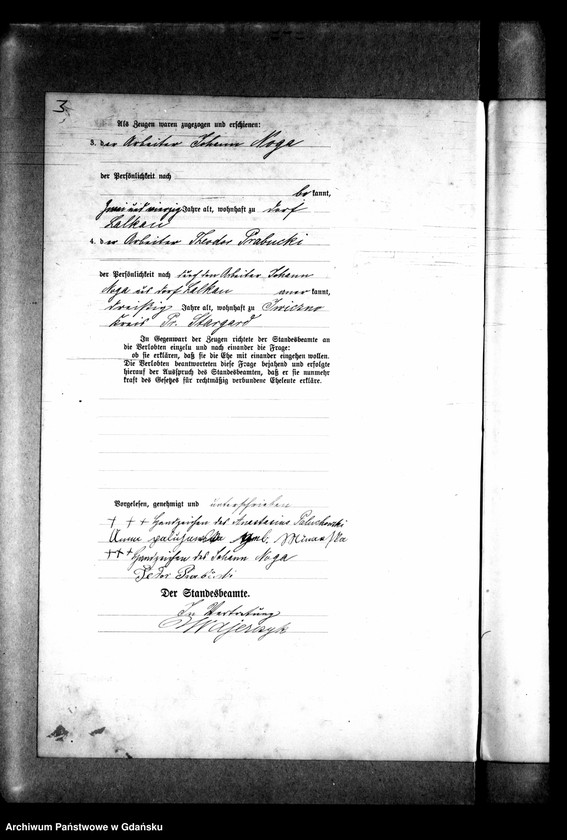 3
Als Zeugen waren zugezogen und erschienen:
3. der Arbeiter Johann Noga
der Persönlichkeit nach
be kannt,
zwei und vierzig Jahre alt, wohnhaft zu Dorf
Lalkau
4. der Arbeiter Theodor Prabucki
der Persönlichkeit nach durch den Arbeiter Johann
Noga aus Dorf Lalkau aner kannt,
dreißig Jahre alt, wohnhaft zu
Kreis Pr. Stargard
In Gegenwart der Zeugen richtete der Standesbeamte an
die Verlobten einzeln und nach einander die Frage:
ob sie erklären, daß sie die Ehe mit einander eingehen wollen.
Die Verlobten beantworteten diese Frage bejahend und erfolgte
hierauf der Ausspruch des Standesbeamten, daß er sie nunmehr
kraft des Gesetzes für rechtmäßig verbundene Eheleute erkläre.
Vorgelesen, genehmigt und unterschrieben
+ + + Handzeichen des Anastasius
Anna geb.
+++ Handzeichen des Johann Noga
Der Standesbeamte.
In Vertretung